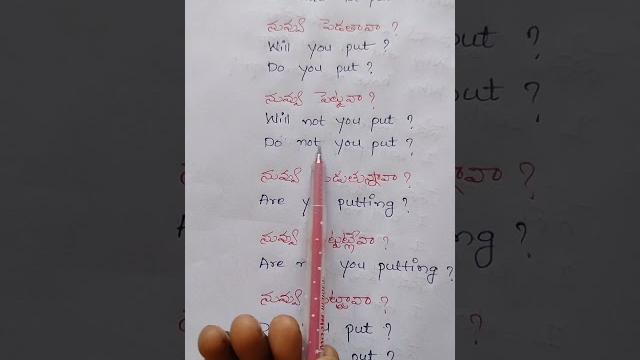 నువ్వు పెడతావా ?
Will you put ?
Do you put ?
నువ్వు పెట్టవా ?
Will not you put ?
Do not you put ?
నువ్వు పెడుతున్నావా ?
Are you putting ?
నువ్వు పెట్టట్లేవా ?
Are you putting ?
నువ్వు పెట్టావా ?
put ?
put ?